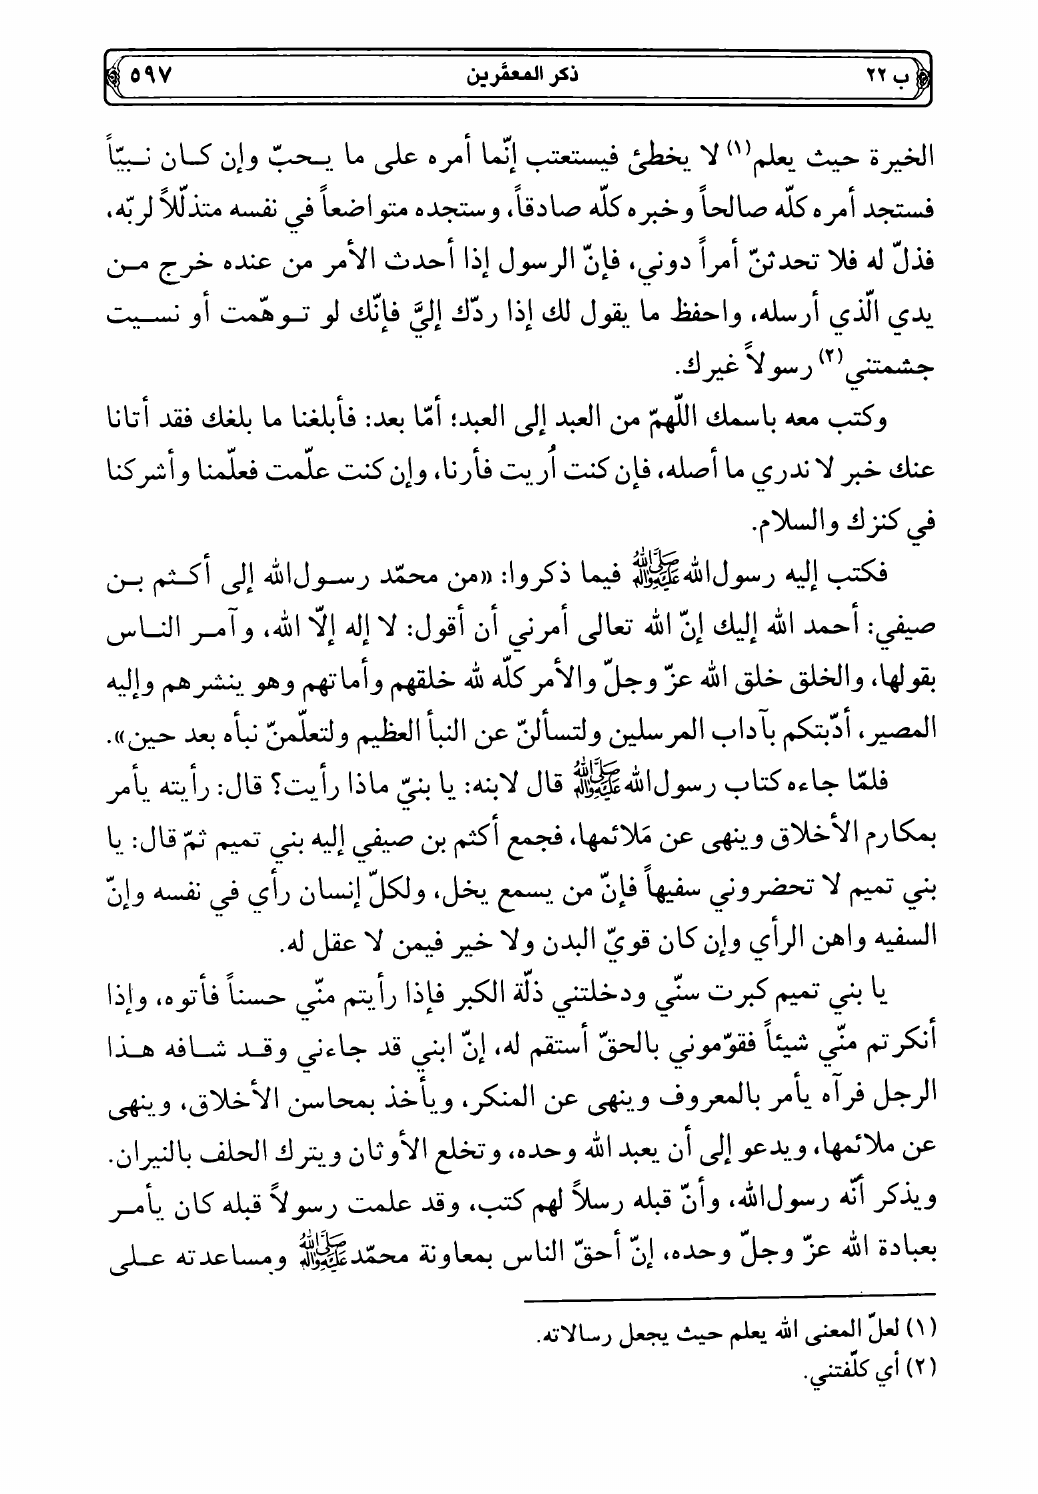 ب ٢٢ ذكر المعمَّرين ٥٩٧
الخيرة حيث يعلم(١) لا يخطئ فيستعتب إنّما أمره على ما يـحبّ وإن كـان نـبيّاً
فستجد أمره كلّه صالحاً وخبره كلّه صادقاً، وستجده متواضعاً في نفسه متذلّلاً لربّه،
فذلّ له فلا تحدثنّ أمراً دوني، فإنّ الرسول إذا أحدث الأمر من عنده خرج مـن
يدي الّذي أرسله، واحفظ ما يقول لك إذا ردّك إليَّ فإنّك لو تـوهّمت أو نسـيت
جشمتني(٢) رسولاً غيرك.
وكتب معه باسمك اللّهمّ من العبد إلى العبد؛ أمّا بعد: فأبلغنا ما بلغك فقد أتانا
عنك خبر لا ندري ما أصله، فإن كنت اُريت فأرنا، وإن كنت علّمت فعلّمنا وأشركنا
في كنزك والسلام.
فكتب إليه رسول‌الله ﷺ فيما ذكروا: «من محمّد رسـول‌الله إلى أكـثم بـن
صيفي: أحمد الله إليك إنّ الله تعالى أمرني أن أقول: لا إله إلّا الله، وآمـر النـاس
بقولها، والخلق خلق الله عزّ وجلّ والأمر كلّه لله خلقهم وأماتهم وهو ينشرهم وإليه
المصير، أدّبتكم بآداب المرسلين ولتسألنّ عن النبأ العظيم ولتعلّمنّ نبأه بعد حين».
فلمّا جاءه كتاب رسول‌الله ﷺ قال لابنه: يا بنيّ ماذا رأيت؟ قال: رأيته يأمر
بمكارم الأخلاق وينهى عن مَلائمها، فجمع أكثم بن صيفي إليه بني تميم ثمّ قال: يا
بني تميم لا تحضروني سفيهاً فإنّ من يسمع يخل، ولكلّ إنسان رأي في نفسه وإنّ
السفيه واهن الرأي وإن كان قويّ البدن ولا خير فيمن لا عقل له.
يا بني تميم كبرت سنّي ودخلتني ذلّة الكبر فإذا رأيتم منّي حسناً فأتوه، وإذا
أنكرتم منّي شيئاً فقوّموني بالحقّ أستقم له، إنّ ابني قد جاءني وقـد شـافه هـذا
الرجل فرآه يأمر بالمعروف وينهى عن المنكر، ويأخذ بمحاسن الأخلاق، وينهى
عن ملائمها، ويدعو إلى أن يعبد الله وحده، وتخلع الأوثان ويترك الحلف بالنيران.
ويذكر أنّه رسول‌الله، وأنّ قبله رسلاً لهم كتب، وقد علمت رسولاً قبله كان يأمـر
بعبادة الله عزّ وجلّ وحده، إنّ أحقّ الناس بمعاونة محمّد ﷺ ومساعدته عـلى
(١) لعلّ المعنى الله يعلم حيث يجعل رسالاته.
(٢) أي كلّفتني.